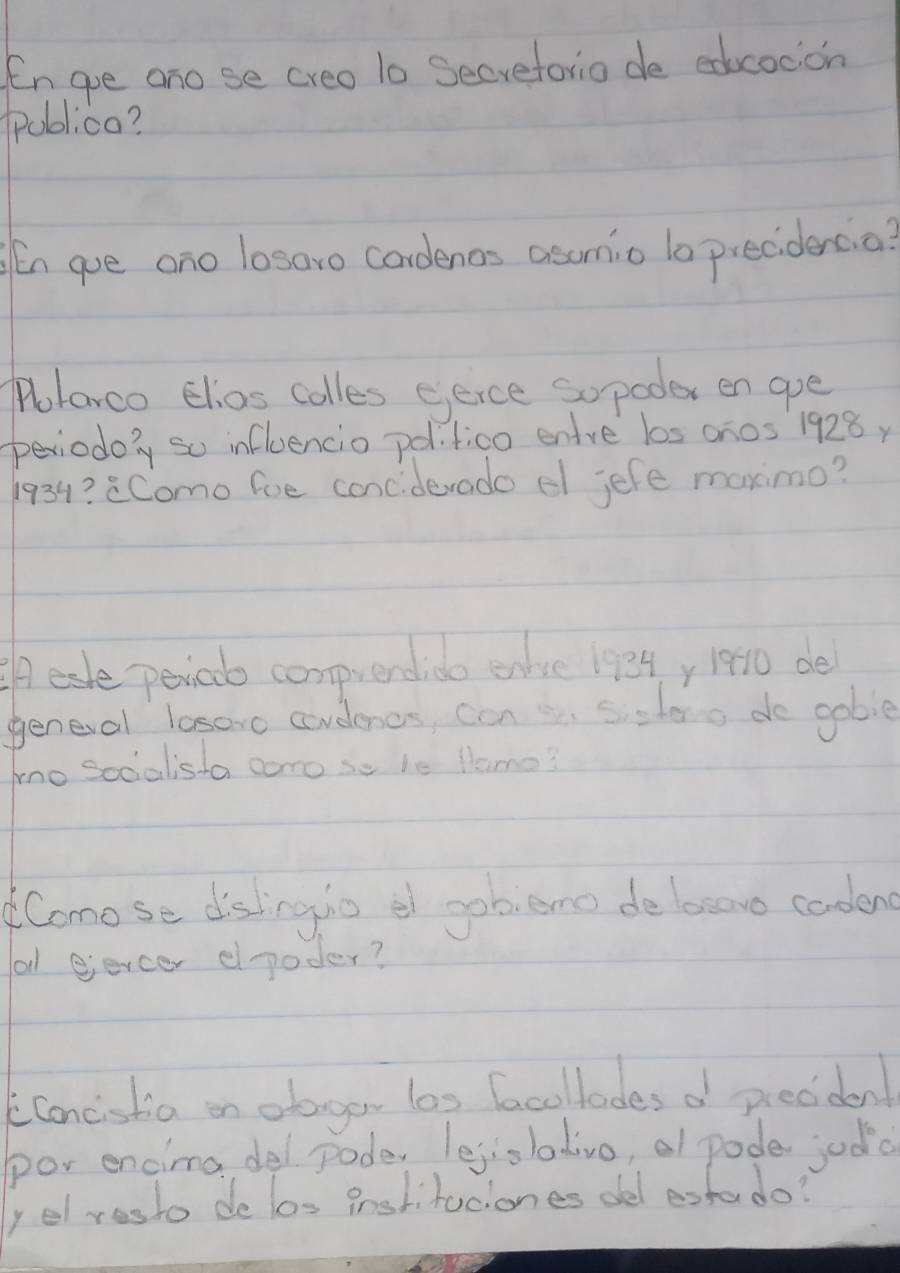 ¿En que ano se creo la Secretaria de educación
publica?
¿En que ano lasaro cardenas asumio la precidencia?
Plutarco Elias calles ejerce su poder en que
periodo? y su influencia politica entre los años 1928 y
1934? ¿Como fue conciderado el jefe maximo?
¿A este periodo comprendido entre 1934 y 1940 del
general lasaro cardenas, con su sistema de gobie
rno socialista como se le llamo?
¿Como se distingio el gobierno de lasaro cardena
al ejercer el poder?
¿Concistia en otorgar las facultades al precident
por encima del poder lejislativo, al poder judic
y el resto de las instituciones del estado?